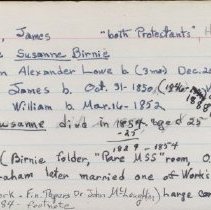 , James "both Protestants", H
e Susanne Birnie
n Alexander Lowe b (3mo) Dec. 2
James b. Oct. 31-1850, (1840 may
William b. Mar. 16-1852 1880
usanne died in 1854 aged 25
-25
1829 - 1854
(Birnie folder, "Rare MSS" room, O
raham later married one of Work's
ork - F.n. Papers Dr. John McLoughlin, Large
84 - footnote